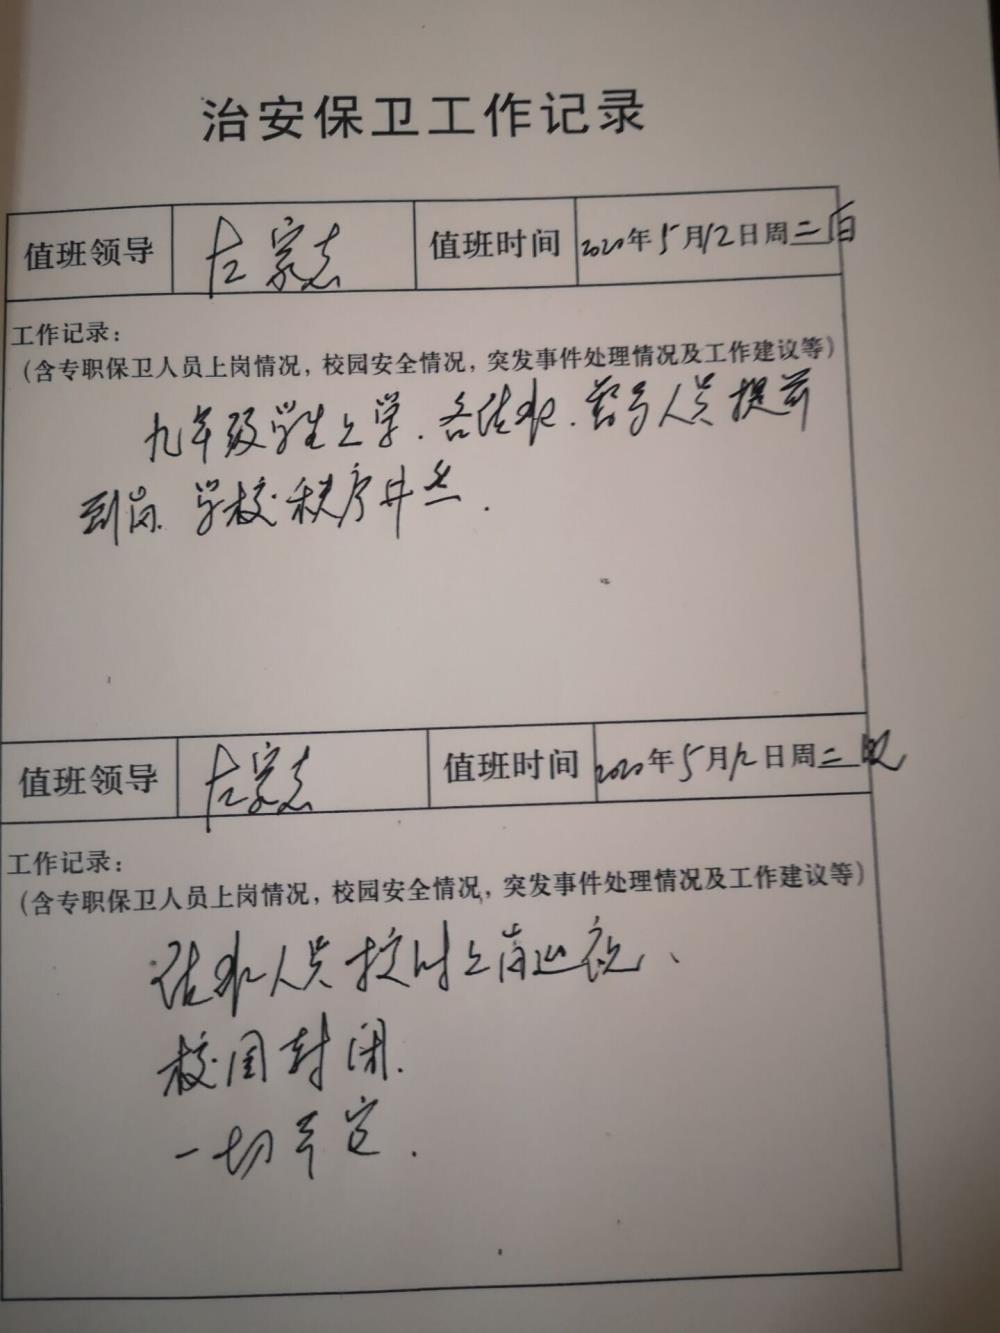 治安保卫工作记录
值班领导 左家志 值班时间 2020年5月12日周二白
工作记录：
（含专职保卫人员上岗情况，校园安全情况，突发事件处理情况及工作建议等）
九年级学生上学.各值班.领导人员提前
到岗.学校秩序井然.
值班领导 左家志 值班时间 2020年5月12日周二夜
工作记录：
（含专职保卫人员上岗情况，校园安全情况，突发事件处理情况及工作建议等）
值班人员按时上岗巡视、
校园封闭.
一切平安.